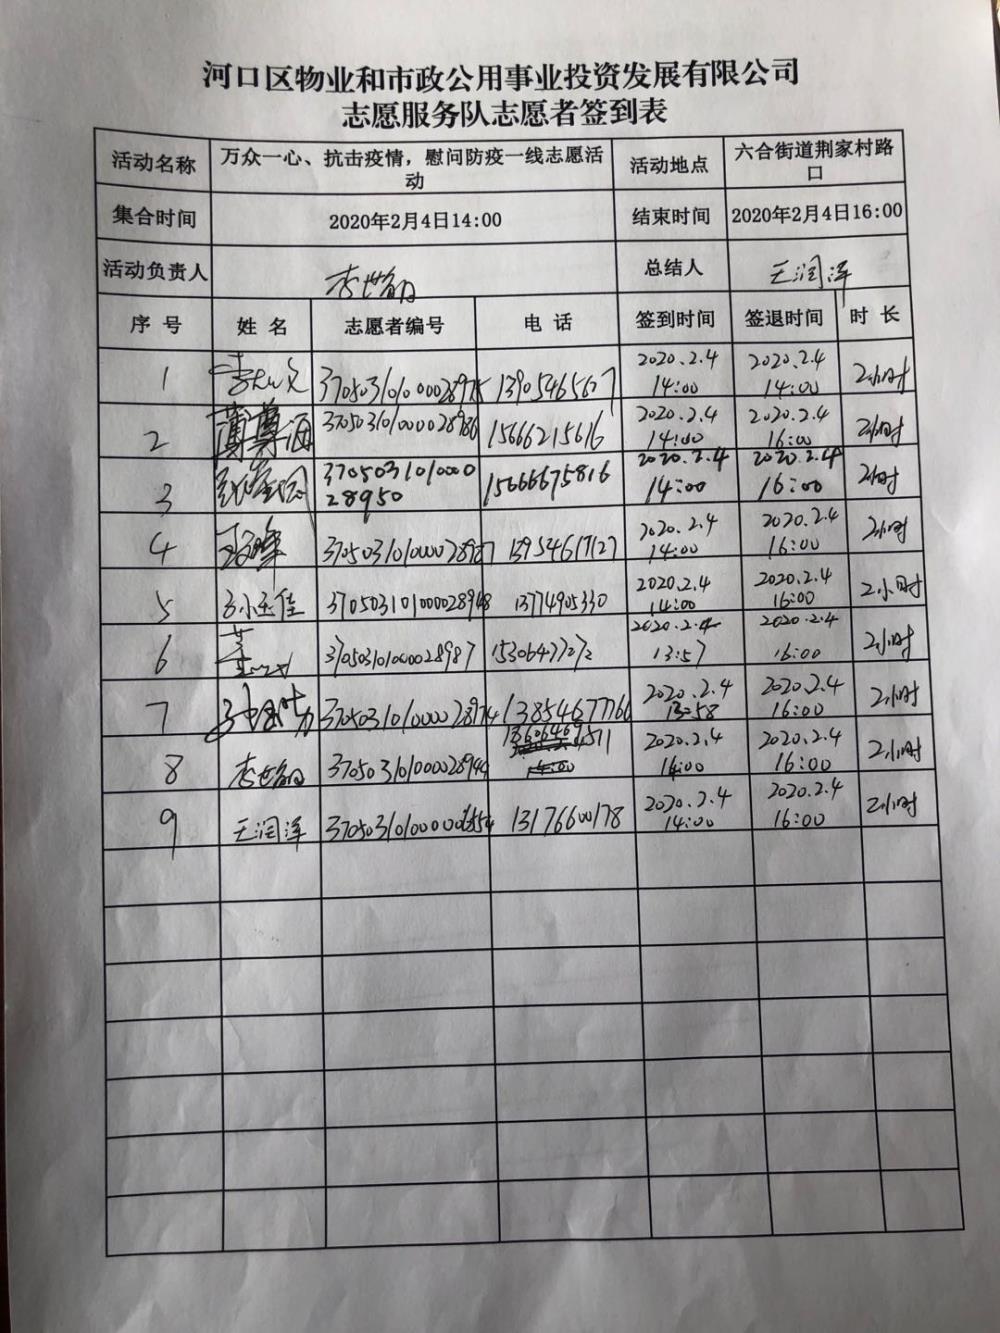 河口区物业和市政公用事业投资发展有限公司
志愿服务队志愿者签到表
活动名称 万众一心、抗击疫情，慰问防疫一线志愿活 活动地点 六合街道荆家村路
动 口
集合时间 2020年2月4日14:00 结束时间 2020年2月4日16:00
活动负责人 总结人 王润泽
序 号 姓 名 志愿者编号 电 话 签到时间 签退时间 时 长
1 2020.2.4 2020.2.4 2小时
14:00 14:00
2 薄尊海 3705031010000028986 15666215616 2020.2.4 2020.2.4 2小时
14:00 16:00
3 370503101000 15666675816 2020.2.4 2020.2.4 2小时
28950 14:00 16:00
4 13954617127 2020.2.4 2020.2.4 2小时
14:00 16:00
5 3705031010000028948 13774905330 2020.2.4 2020.2.4 2小时
14:00 16:00
6 3705031010000028987 15306477272 2020.2.4 2020.2.4 2小时
13:57 16:00
7 3705031010000028974 13854677766 2020.2.4 2020.2.4 2小时
13:58 16:00
8 2020.2.4 2020.2.4 2小时
14:00 16:00
9 王润泽 13176600178 2020.2.4 2020.2.4 2小时
14:00 16:00